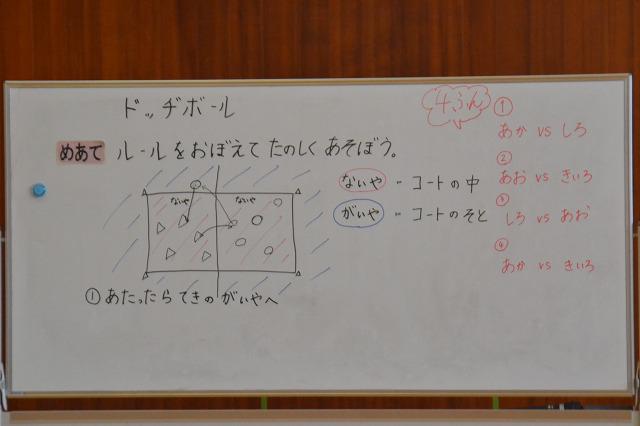 ドッヂボール
めあて ルールをおぼえてたのしくあそぼう。
ないや ないや
①あたったらてきのがいやへ
ないや ‥コートの中
がいや ‥コートのそと
4ふん
①
あか VS しろ
②
あお VS きいろ
③
しろ VS あお
④
あか VS きいろ